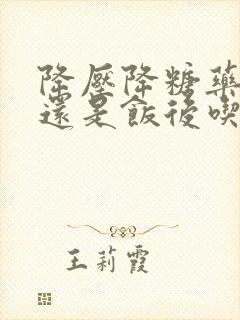 降壓降糖藥
還是飯後喫
王莉霞